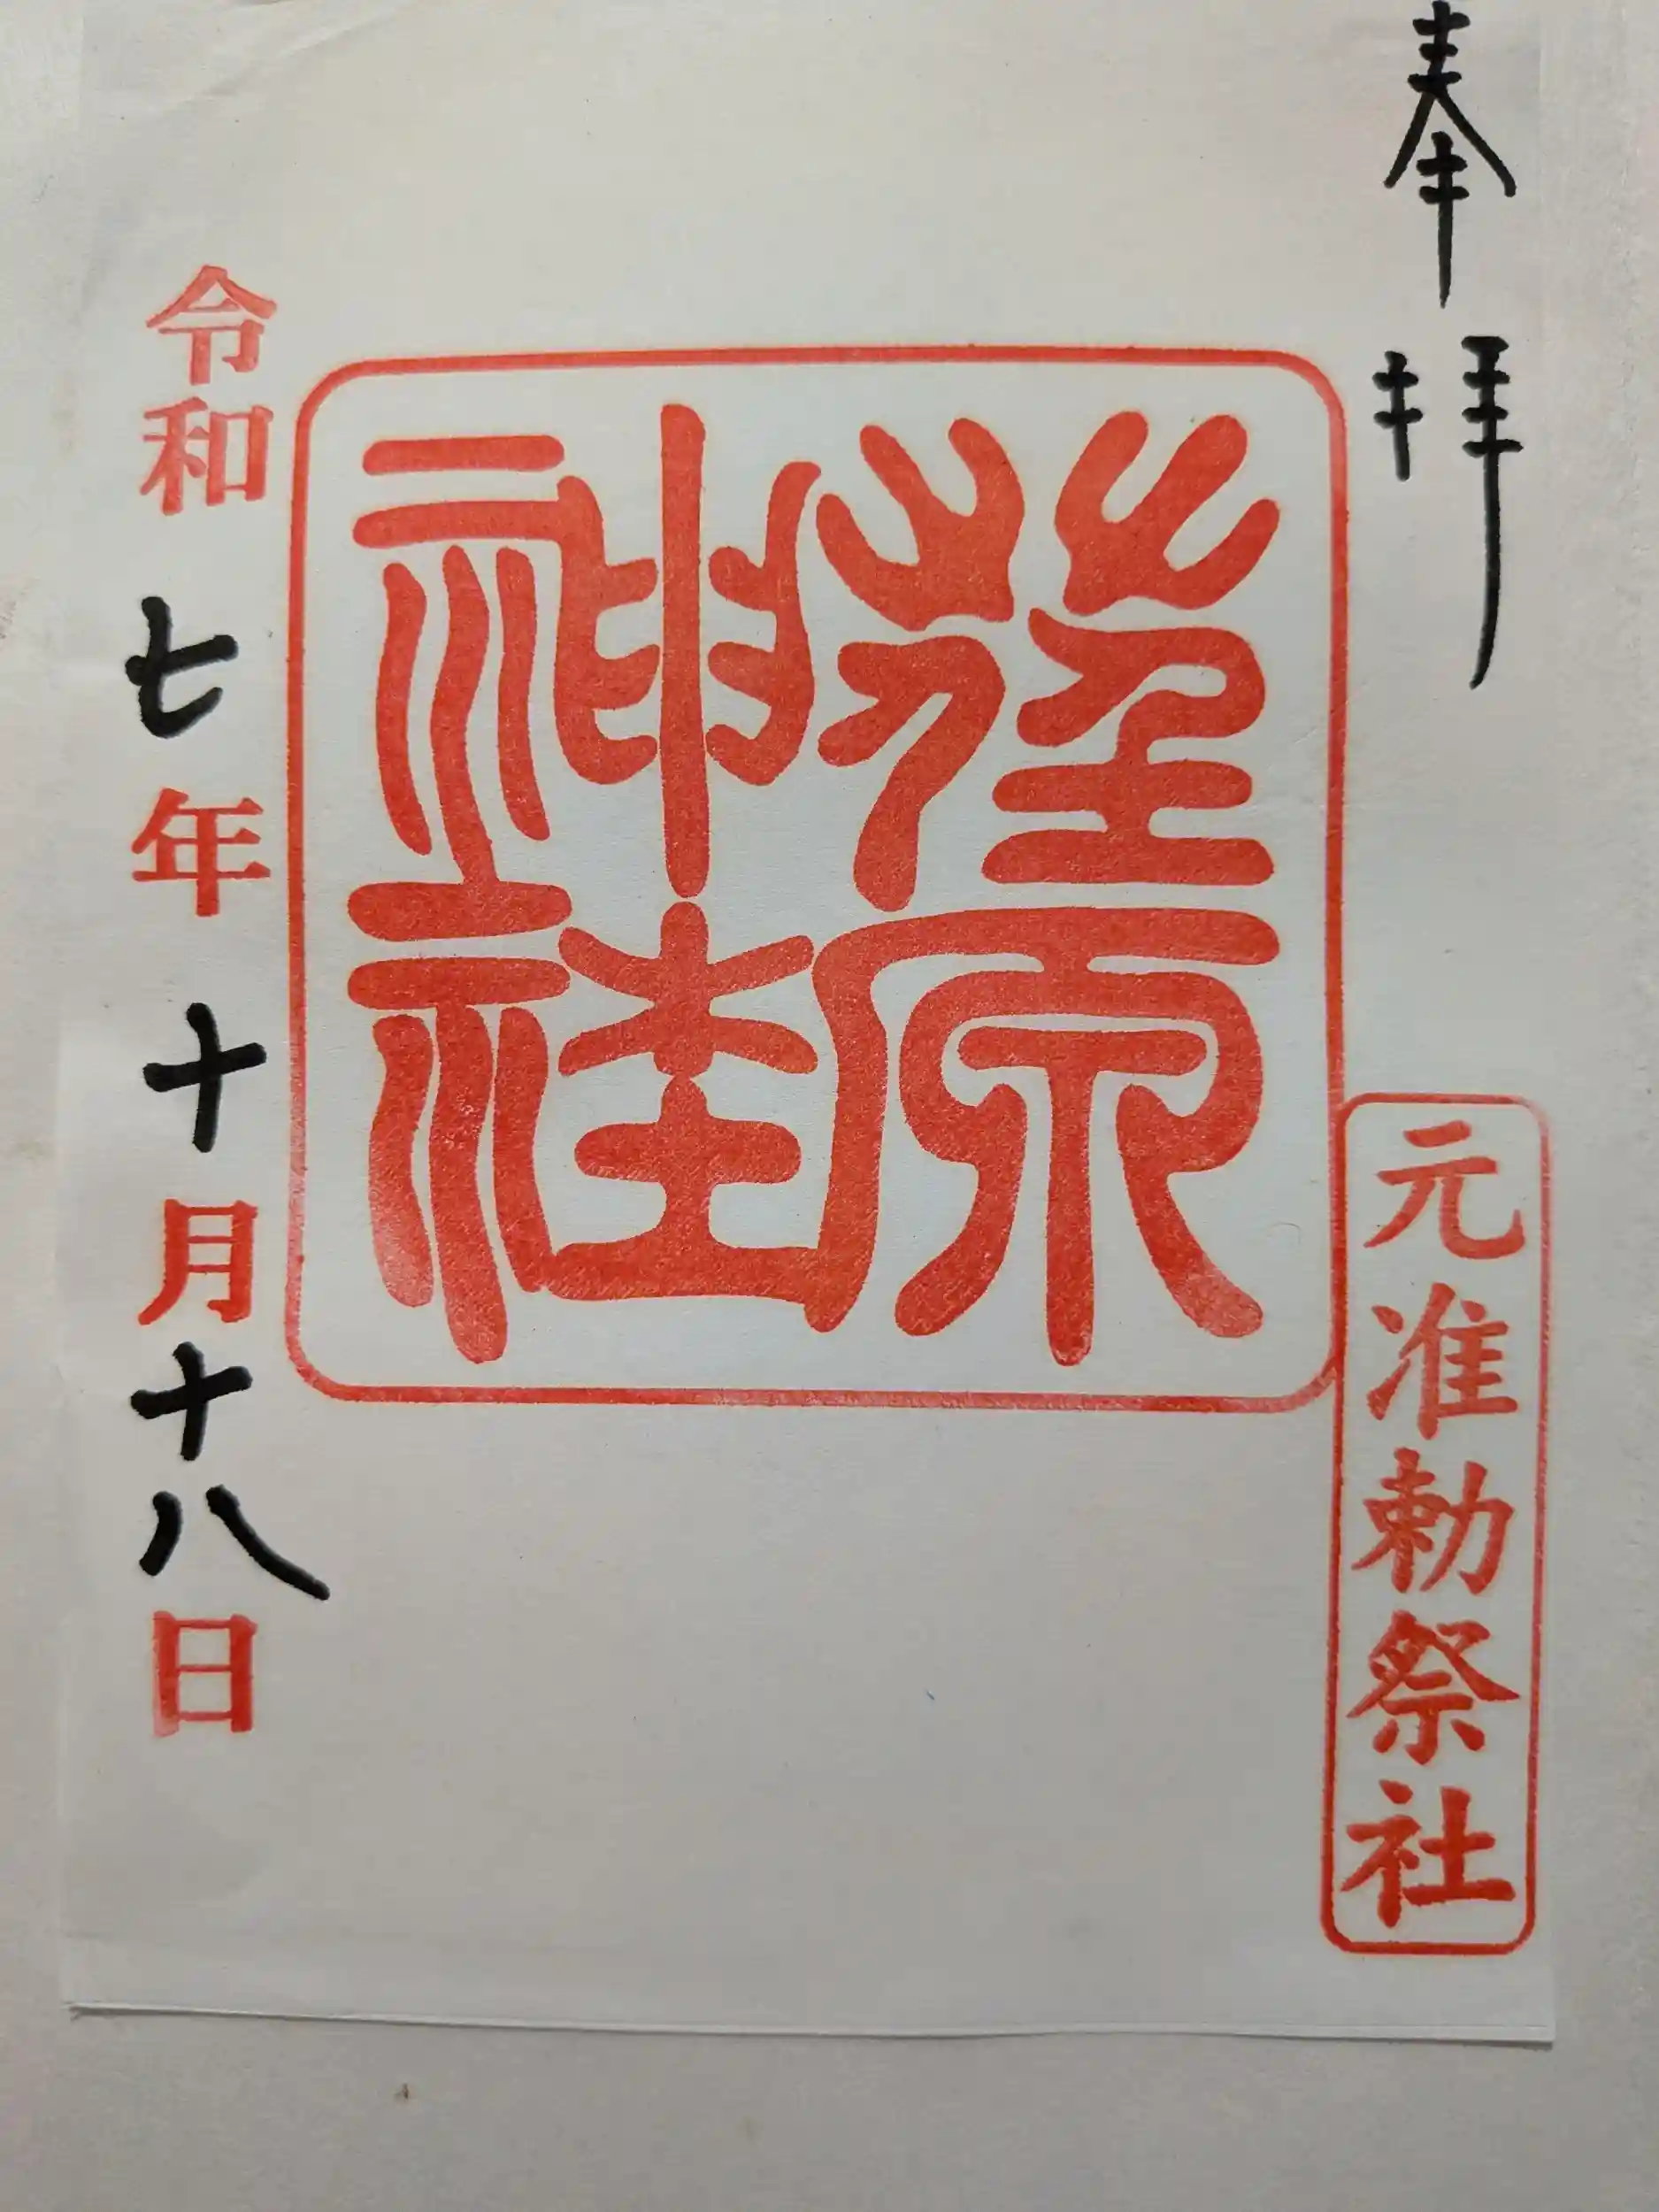 奉拝
元准勅祭社
荏原
神社
令和七年十月十八日